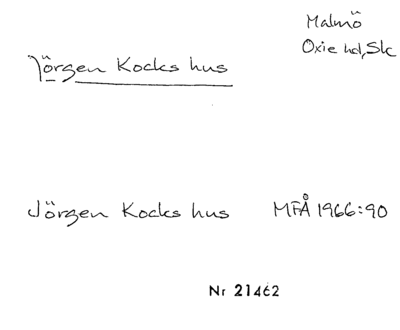 Malmö
Oxie hd, Sk
Jörgen Kocks hus
Jörgen Kocks hus MFÅ 1966:90
Nr 21462